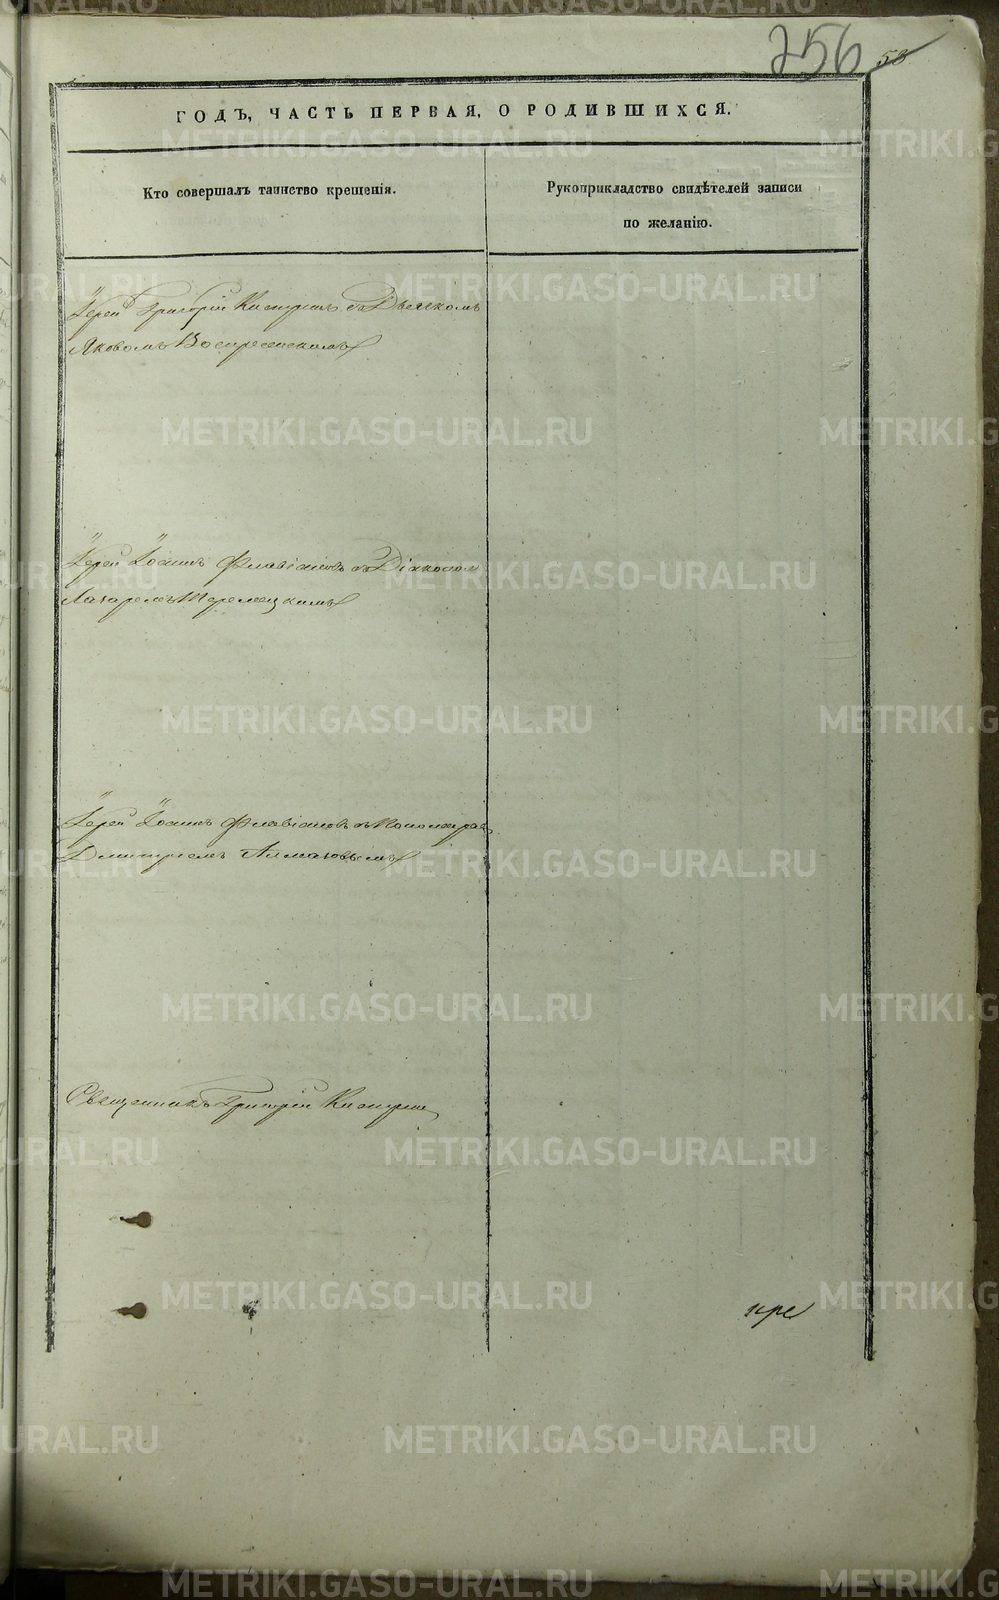 256 58
ГОДЪ, ЧАСТЬ ПЕРВАЯ, О РОДИВШИХСЯ.
Кто совершалъ таинство крещенія.
Рукоприкладство свидѣтелей записи
по желанію.
Іерей Григорій съ Дьячкомъ
Яковомъ Воскресенскимъ
Іерей Іоаннъ Флавіановъ съ Діакономъ
Лазаремъ
Іерей Іоаннъ Флавіановъ съ Пономарем
Дмитріемъ
Священникъ Григорій
METRIKI.GASO-URAL.RU